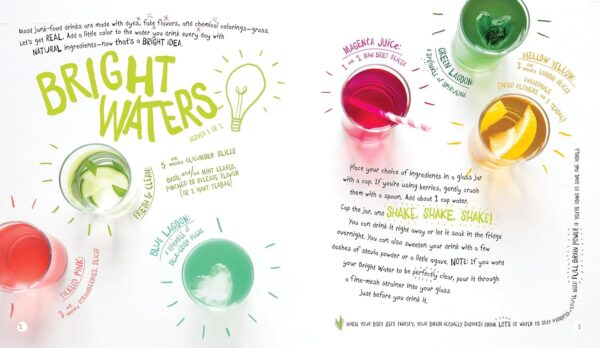 Most junk-food drinks are made with dyes, fake flavors, and chemical colorings—gross.
Let's get REAL. Add a little color to the water you drink every day with
NATURAL ingredients—now that's a BRIGHT IDEA.
BRIGHT
WATERS
SERVES 1 OR 2
FRESH & CLEAN:
5 OR MORE CUCUMBER SLICES
BASIL and/or MINT LEAVES,
PINCHED TO RELEASE FLAVOR
(OR 1 MINT TEABAG)
BLUE LAGOON:
A SPRINKLE OF
BLUE-GREEN ALGAE
TICKLED PINK:
3 OR MORE STRAWBERRIES, SLICED
2
MAGENTA JUICE:
1 OR 2 RAW BEET SLICES
GREEN LAGOON:
A SPRINKLE OF SPIRULINA
MELLOW YELLOW:
3 OR MORE LEMON SLICES
CHAMOMILE
(DRIED FLOWERS OR 1 TEABAG)
Place your choice of ingredients in a glass jar
with a cap. If you're using berries, gently crush
them with a spoon. Add about 1 cup water.
Cap the jar, and SHAKE, SHAKE, SHAKE!
You can drink it right away or let it soak in the fridge
overnight. You can also sweeten your drink with a few
dashes of stevia powder or a little agave. NOTE: If you want
your Bright Water to be perfectly clear, pour it through
a fine-mesh strainer into your glass
just before you drink it.
WHEN YOUR BODY GETS THIRSTY, YOUR BRAIN ACTUALLY SHRINKS! DRINK LOTS OF WATER TO STAY HYDRATED—YOU'LL NEED FULL BRAIN POWER IF YOU'RE GOING TO SAVE THE WORLD.
3